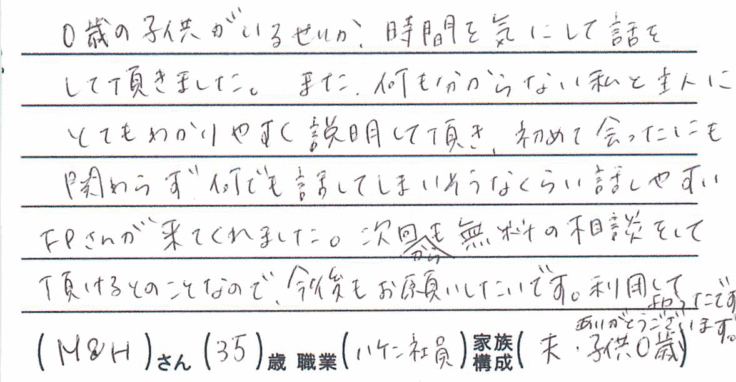 0歳の子供がいるせいか、時間を気にして話を
して頂きました。 また、何も分からない私と主人に
とてもわかりやすく説明して頂き、初めて会ったにも
関わらず何でも話してしまいそうなくらい話しやすい
FPさんが来てくれました。次回も無料の相談をして
から
頂けるとのことなので、今後もお願いしたいです。利用して
よかったです
ありがとうございます。
(M&H)さん(35)歳 職業(ハケン社員)家族構成(夫・子供0歳)